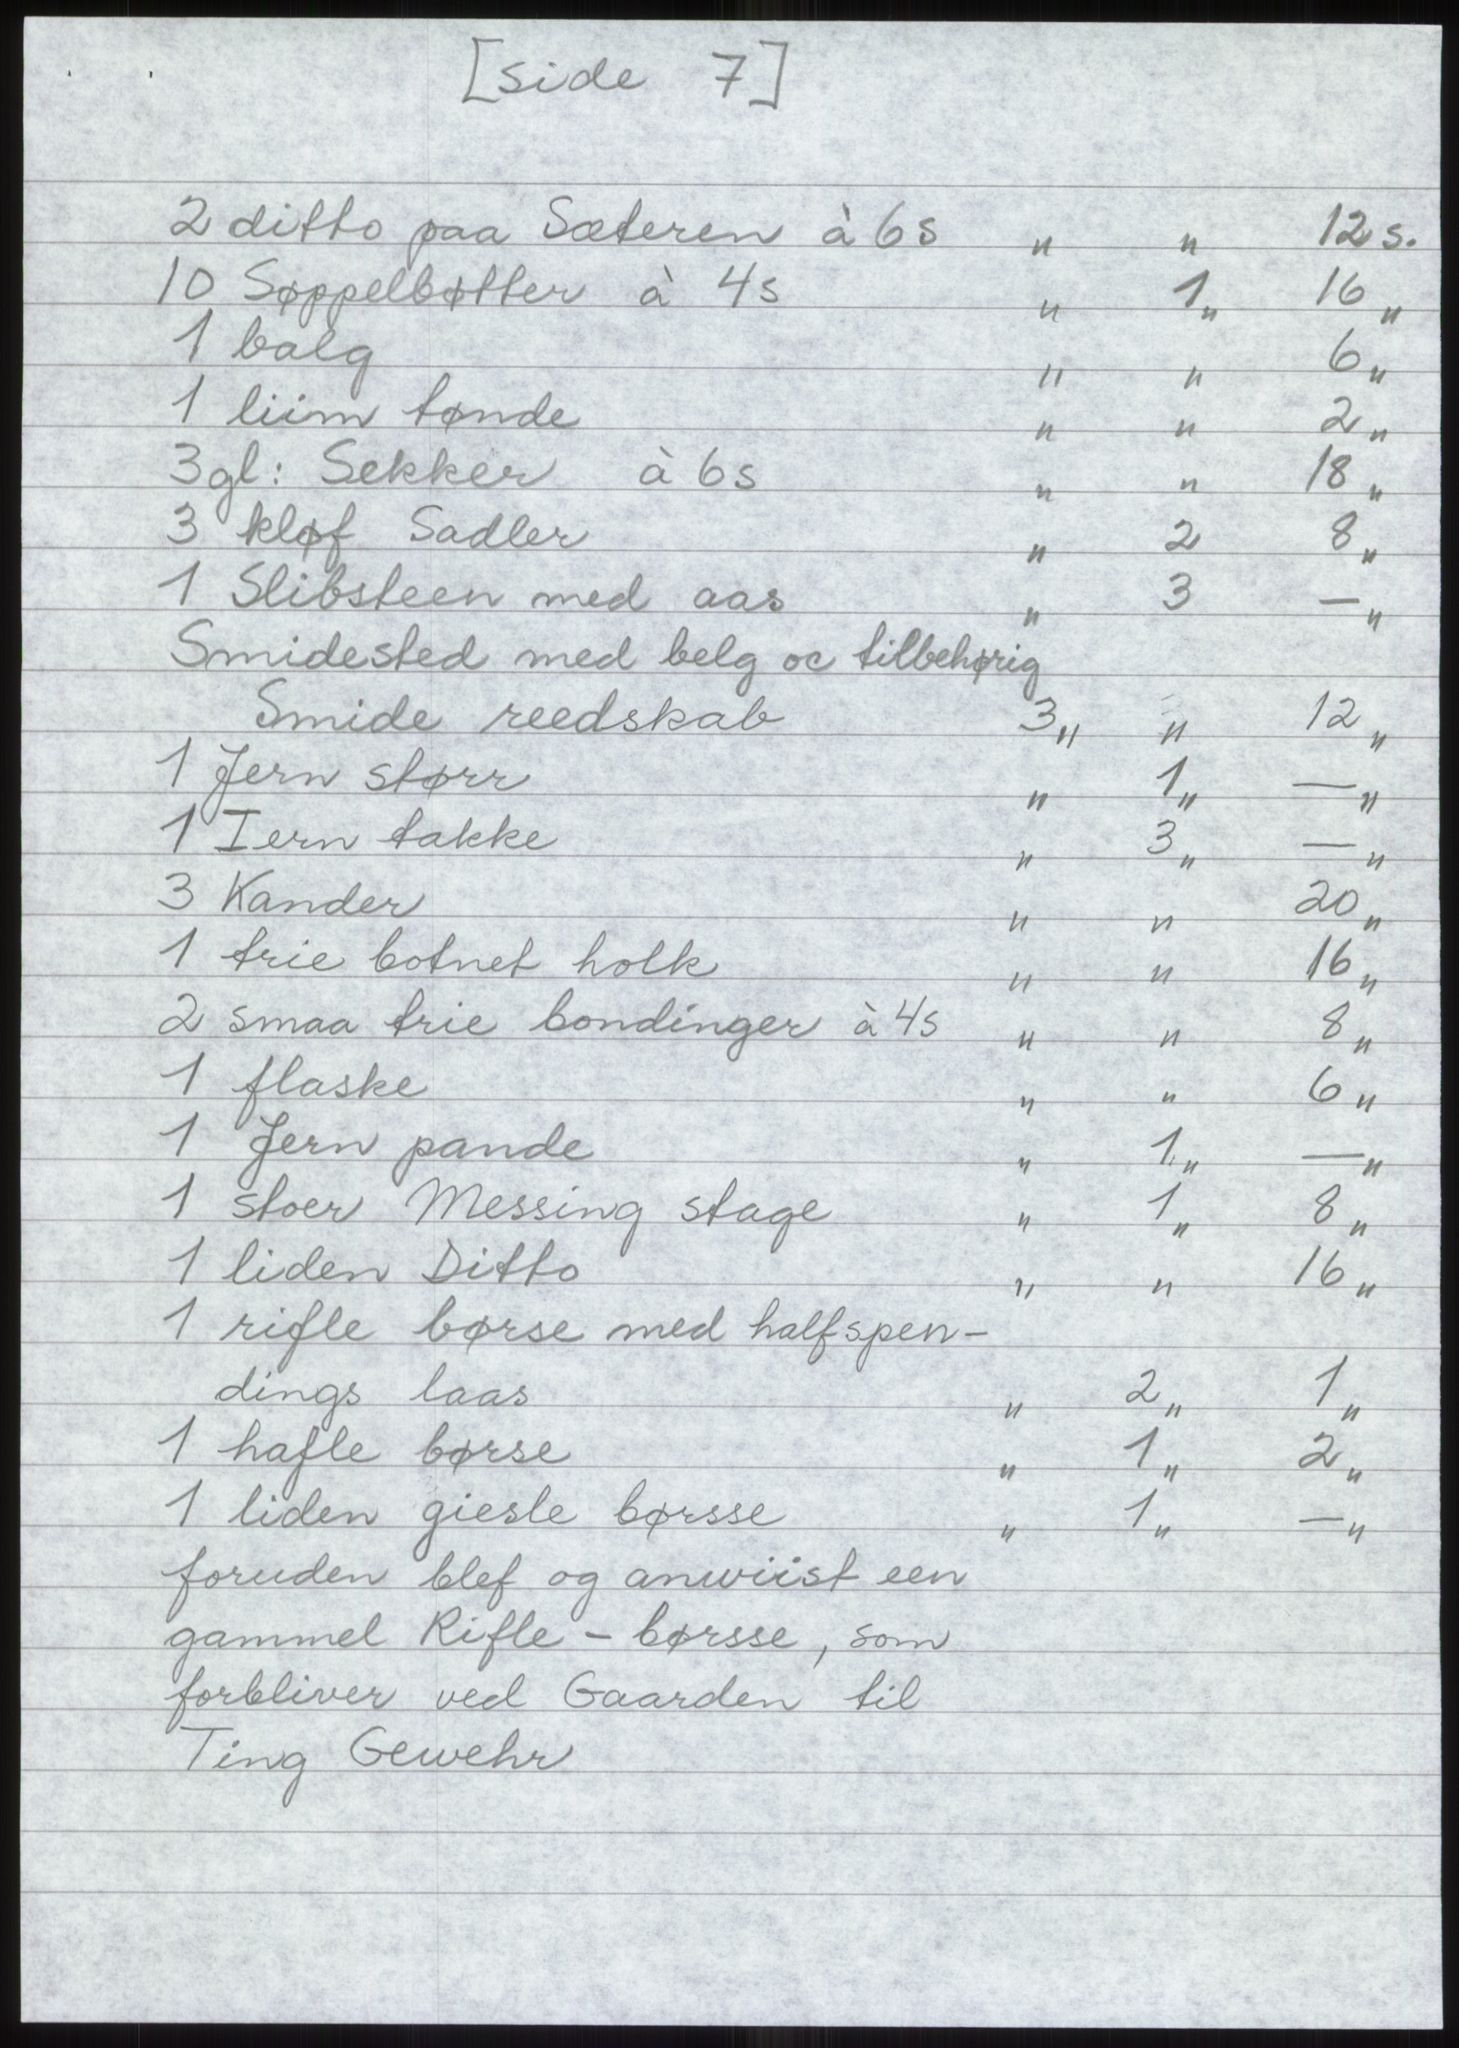 [side 7]
2 ditto paa Sæteren à 6s " " 12 s.
10 Søppelbøtter à 4s " 1" 16 "
1 balg " " 6 "
1 liim tønde " " 2 "
3 gl: Sekker à 6s " " 18 "
3 kløf Sadler " 2 8 "
1 Slibsteen med aas " 3 — "
Smidested med belg oc tilbehørig
Smide reedskab 3 " " 12 "
1 Jern størr " 1 " — "
1 Iern takke " 3 " — "
3 Kander " " 20 "
1 trie botnet holk " " 16 "
2 smaa trie bondinger à 4s " " 8 "
1 flaske " " 6 "
1 Jern pande " 1 " — "
1 stoer Messing stage " 1 " 8 "
1 liden Ditto " " 16 "
1 rifle børse med halfspen-
dings laas " 2 " 1 "
1 hafle børse " 1 " 2 "
1 liden giesle børsse " 1 " — "
foruden blef og anwiist een
gammel Rifle - børsse, som
forbliver ved Gaarden til
Ting Gewehr